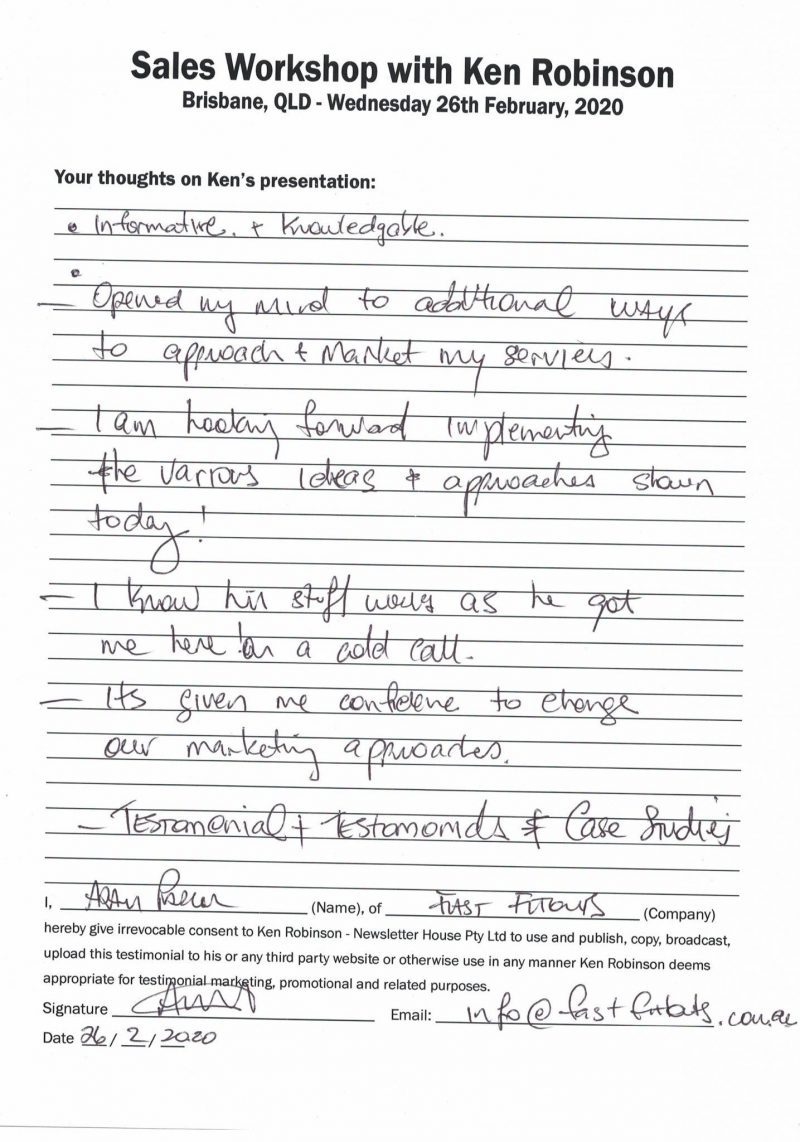 Sales Workshop with Ken Robinson
Brisbane, QLD - Wednesday 26th February, 2020
Your thoughts on Ken's presentation:
• Informative. + Knowledgable.
•
— Opened my mind to additional ways
to approach + Market my services.
— I am looking forward implementing
the various ideas + approaches shown
today!
— I know his stuff works as he got
me here on a cold call.
— Its given me confidence to change
our marketing approaches.
— & Case Studies
I, (Name), of FAST (Company)
hereby give irrevocable consent to Ken Robinson - Newsletter House Pty Ltd to use and publish, copy, broadcast,
upload this testimonial to his or any third party website or otherwise use in any manner Ken Robinson deems
appropriate for testimonial marketing, promotional and related purposes.
Signature Email:
Date 26/2/2020